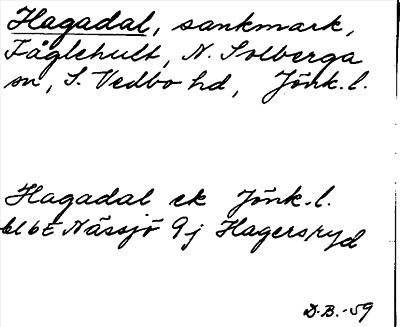 Hagadal, sankmark,
Fåglehult, N. Solberga
sn, S. Vedbo hd, Jönk. l.
Hagadal ek Jönk. l.
bl 6E Nässjö 9j Hagersryd
D.B. -59